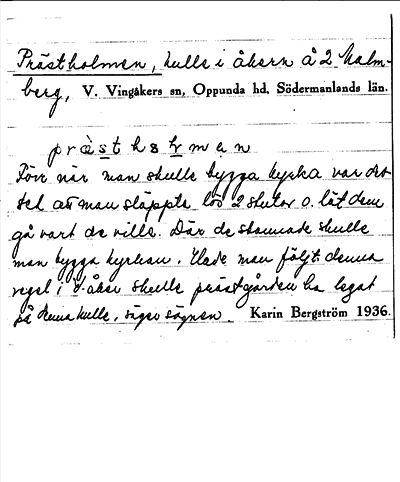 Prästholmen, kulle i åkern å 2 Malm-
berg, V. Vingåkers sn, Oppunda hd, Södermanlands län.
Förr när man skulle bygga kyrka var det
sed att man släppte lös 2 stutar o. lät dem
gå vart de ville. Där de stannade skulle
man bygga kyrkan. Hade man följt denna
regel i V-åker skulle prästgården ha legat
på denna kulle, säger sägnen. Karin Bergström 1936.